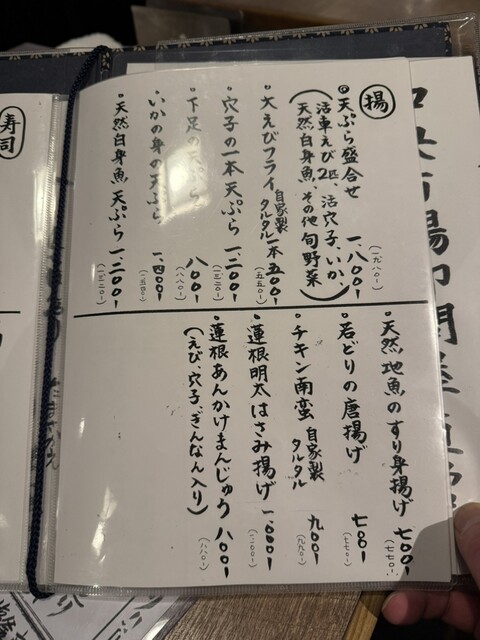 揚
◎天ぷら盛合せ 一、八〇〇
(一九八〇)
(活車えび2匹、活穴子、いか、
天然白身魚、その他 旬野菜)
・大えびフライ 自家製タルタル 一本 五〇〇
(五五〇)
・穴子の一本天ぷら 一、二〇〇
(一三二〇)
・下足の天ぷら 八〇〇
(八八〇)
・いかの身の天ぷら 一、四〇〇
(一、五四〇)
・天然白身魚天ぷら 一、二〇〇
(一三二〇)
・天然地魚のすり身揚げ 七〇〇
(七七〇)
・若どりの唐揚げ 七〇〇
(七七〇)
・チキン南蛮 自家製タルタル 九〇〇
(九九〇)
・蓮根明太はさみ揚げ 一、〇〇〇
(一一〇〇)
・蓮根あんかけまんじゅう 八〇〇
(えび、穴子、ぎんなん入り)
(八八〇)
寿司